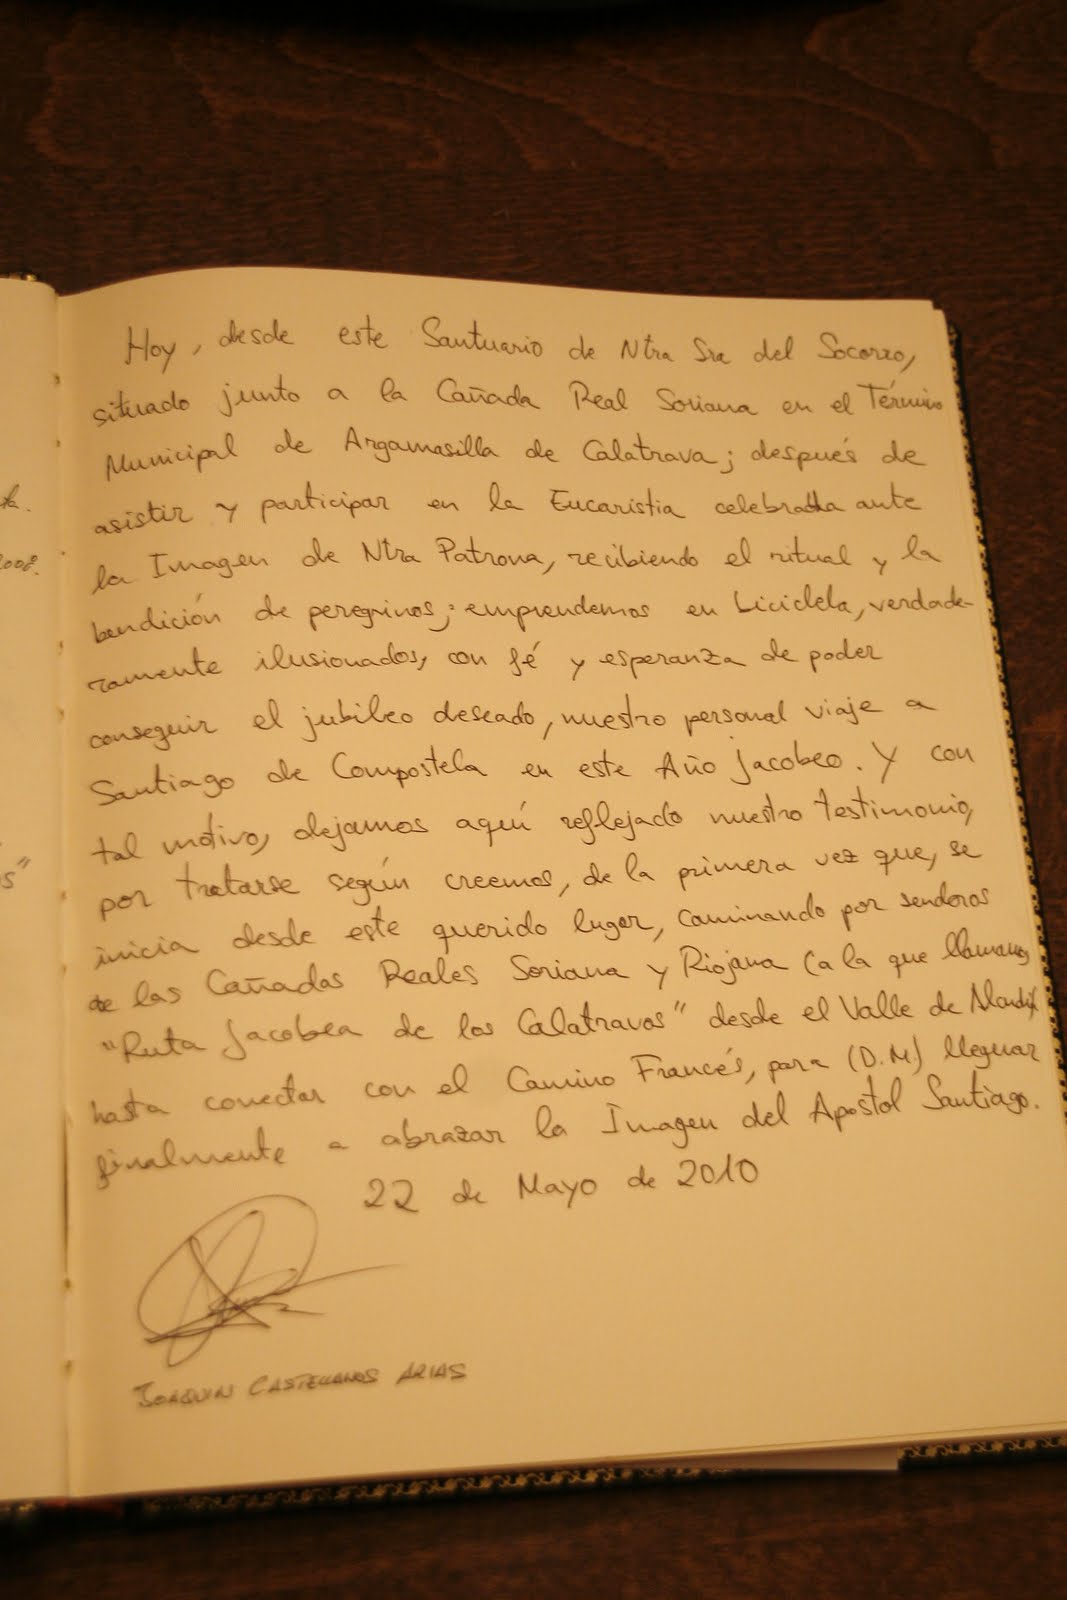 Hoy, desde este Santuario de Ntra Sra del Socorro,
situado junto a la Cañada Real Soriana en el Término
Municipal de Argamasilla de Calatrava; después de
asistir y participar en la Eucaristia celebrada ante
la Imagen de Ntra Patrona, recibiendo el ritual y la
bendición de peregrinos; emprendemos en bicicleta, verdade-
ramente ilusionados, con fé y esperanza de poder
conseguir el jubileo deseado, nuestro personal viaje a
Santiago de Compostela en este Año Jacobeo. Y con
tal motivo, dejamos aquí reflejado nuestro testimonio,
por tratarse según creemos, de la primera vez que, se
inicia desde este querido lugar, caminando por senderos
de las Cañadas Reales Soriana y Riojana (a la que llamamos
"Ruta Jacobea de los Calatravos" desde el Valle de
hasta conectar con el Camino Francés, para (D.M.) lleguar
finalmente a abrazar la Imagen del Apostol Santiago.
22 de Mayo de 2010
JOAQUIN CASTELLANOS ARIAS
2008.